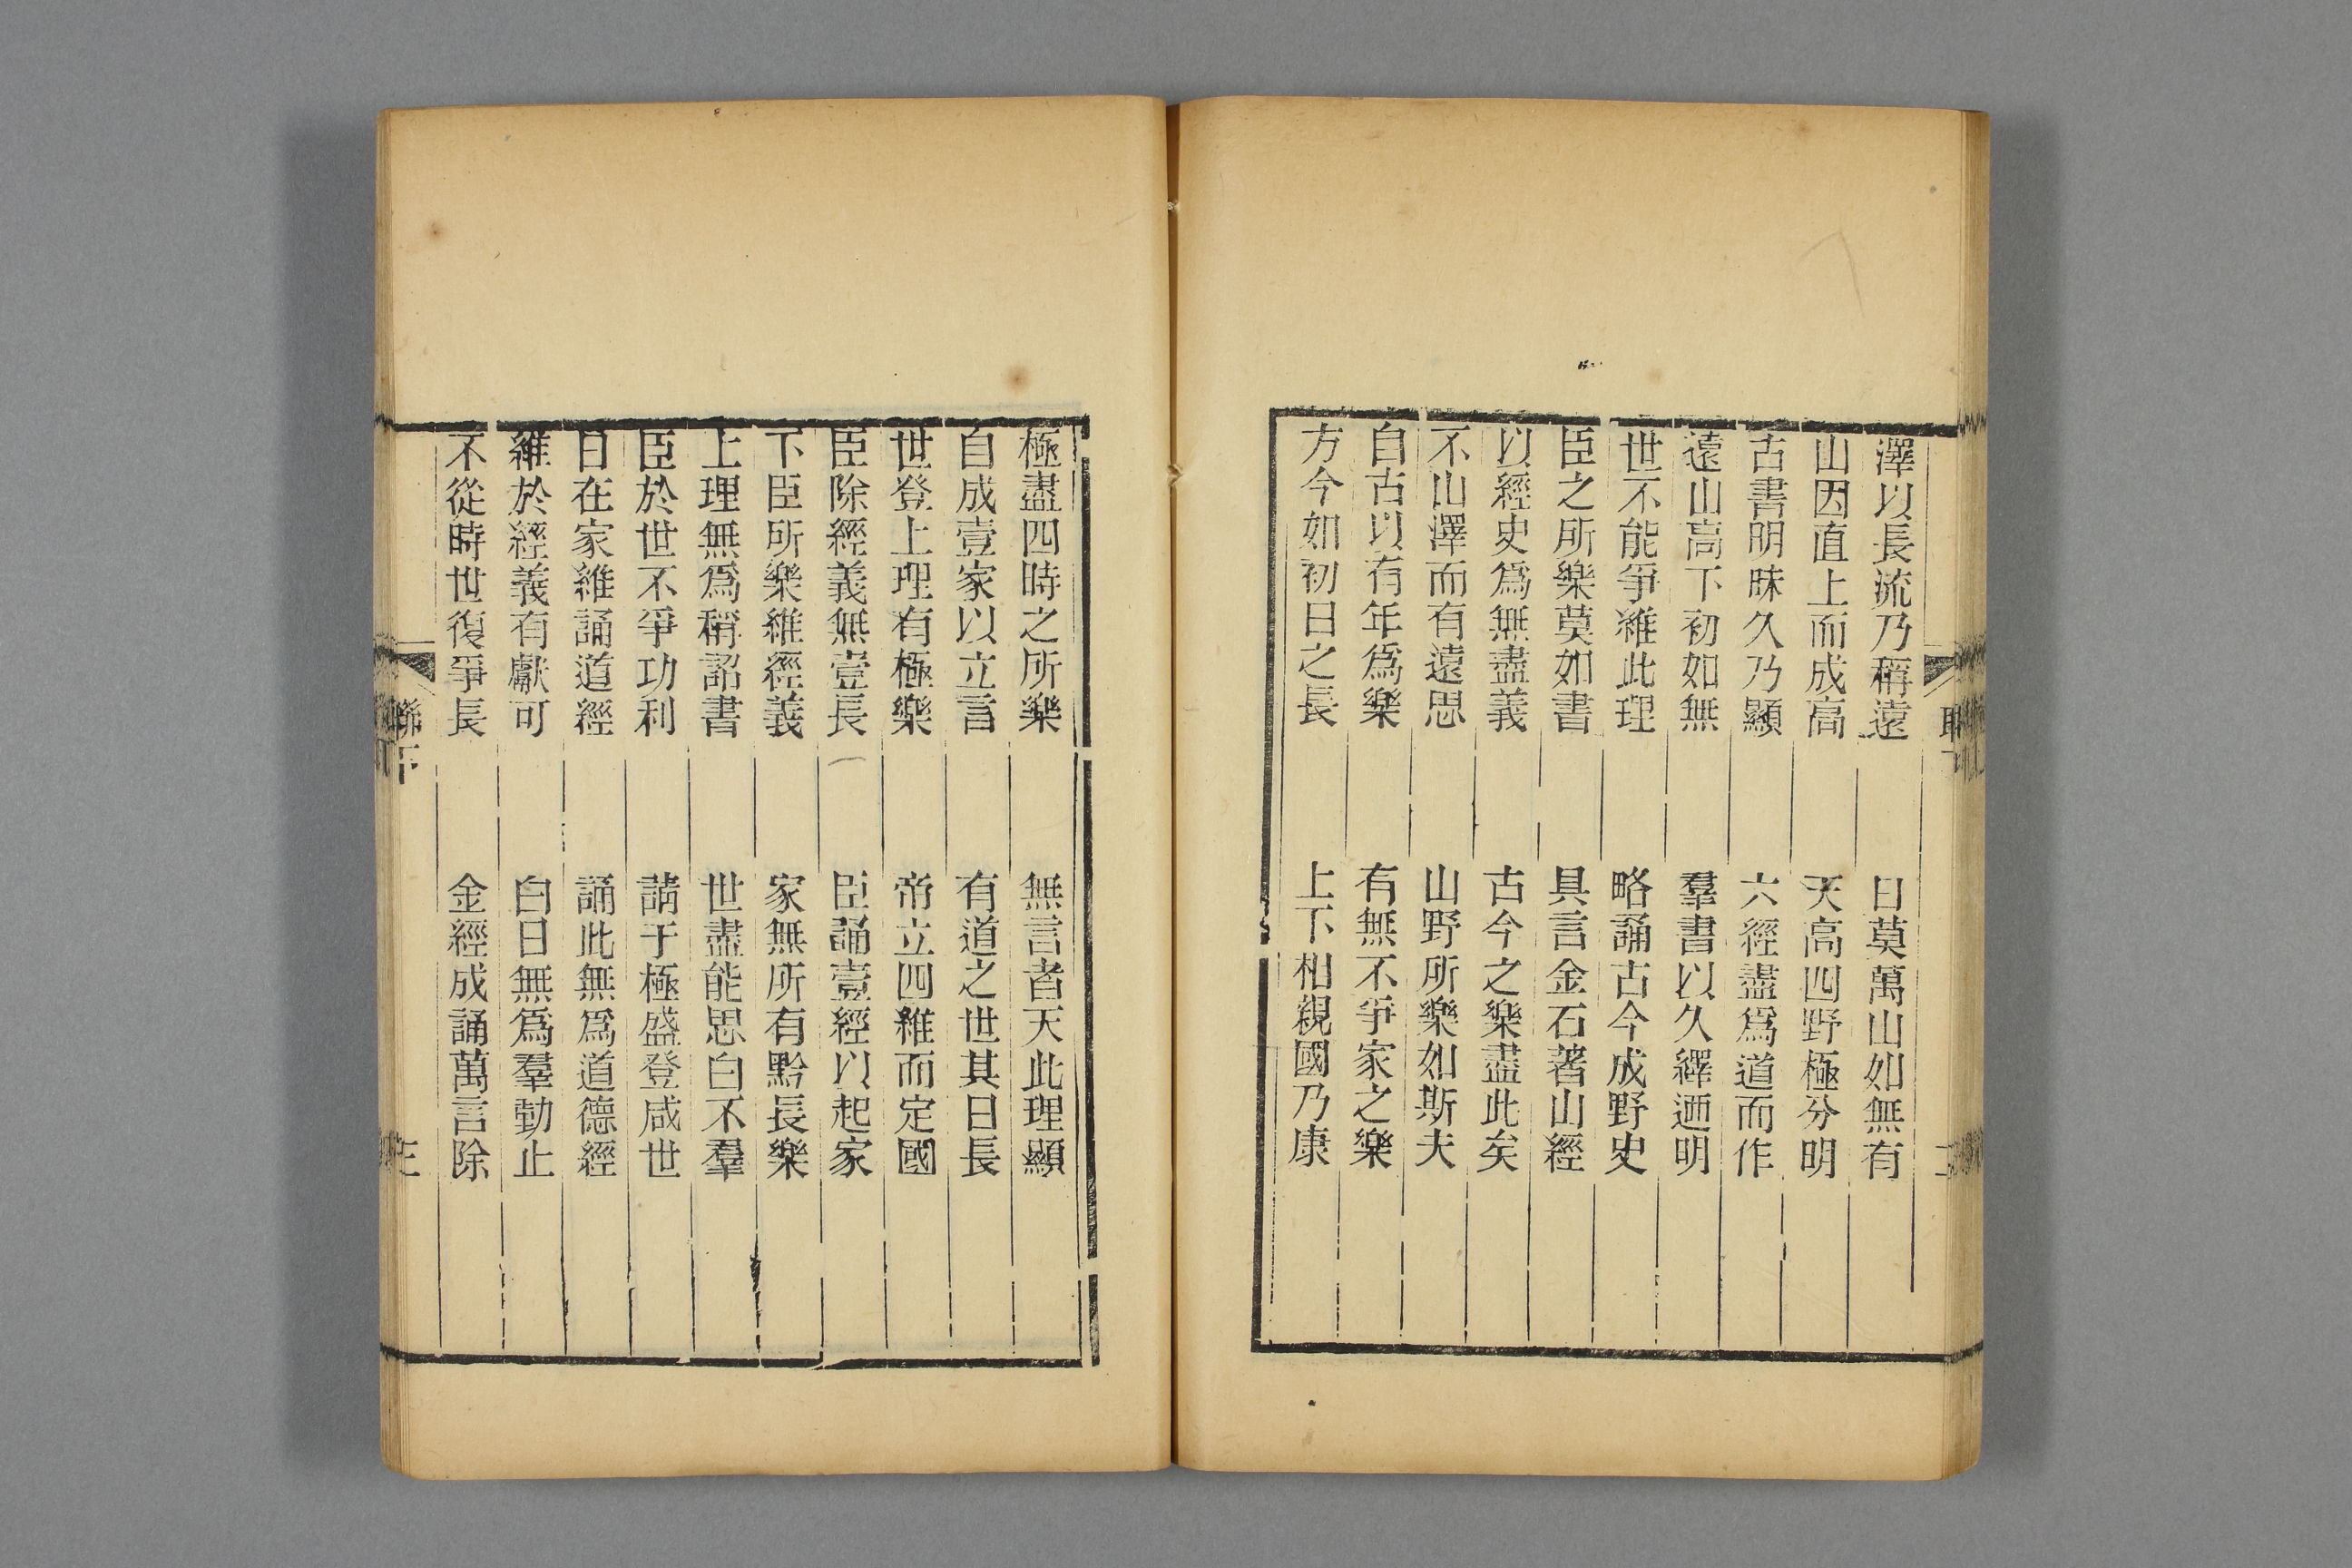 澤以長流乃稱遠　日莫萬山如無有
山因直上而成高　天高四野極分明
古書明昧久乃顯　六經盡爲道而作
遠山高下初如無　羣書以久繹迺明
世不能爭維此理　略誦古今成野史
臣之所樂莫如書　具言金石著山經
以經史爲無盡義　古今之樂盡此矣
不山澤而有遠思　山野所樂如斯夫
自古以有年爲樂　有無不爭家之樂
方今如初日之長　上下相親國乃康
極盡四時之所樂　無言者天此理顯
自成壹家以立言　有道之世其日長
世登上理有極樂　帝立四維而定國
臣除經義無壹長　臣誦壹經以起家
下臣所樂維經義　家無所有黔長樂
上理無爲稱詔書　世盡能思白不羣
臣於世不爭功利　請于極盛登咸世
日在家維誦道經　誦此無爲道德經
維於經義有獻可　白日無爲羣動止
不從時世復爭長　金經成誦萬言除
聯下
三